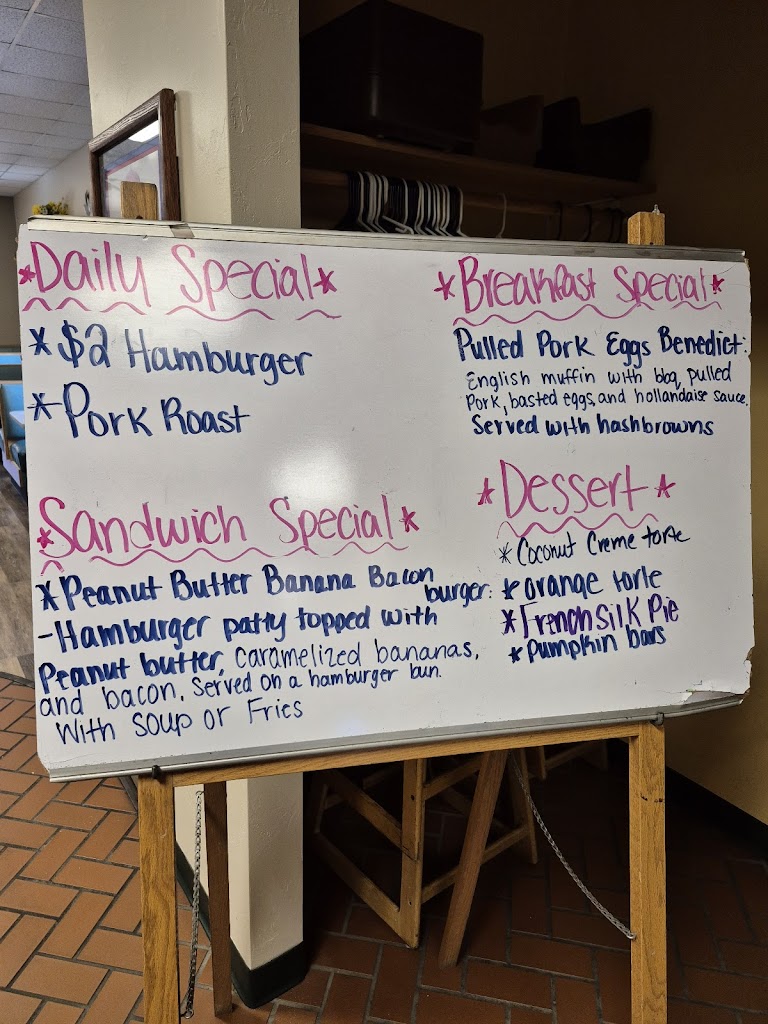 *Daily Special*
*$2 Hamburger
*Pork Roast
*Sandwich Special*
*Peanut Butter Banana Bacon
burger:
-Hamburger patty topped with
Peanut butter, caramelized bananas,
and bacon. Served on a hamburger bun.
With soup or Fries
*Breakfast Special*
Pulled Pork Eggs Benedict:
English muffin with bbq pulled
Pork, basted eggs, and hollandaise sauce.
Served with hashbrowns
*Dessert*
*Coconut Creme torte
*orange torte
*French Silk Pie
*Pumpkin bars